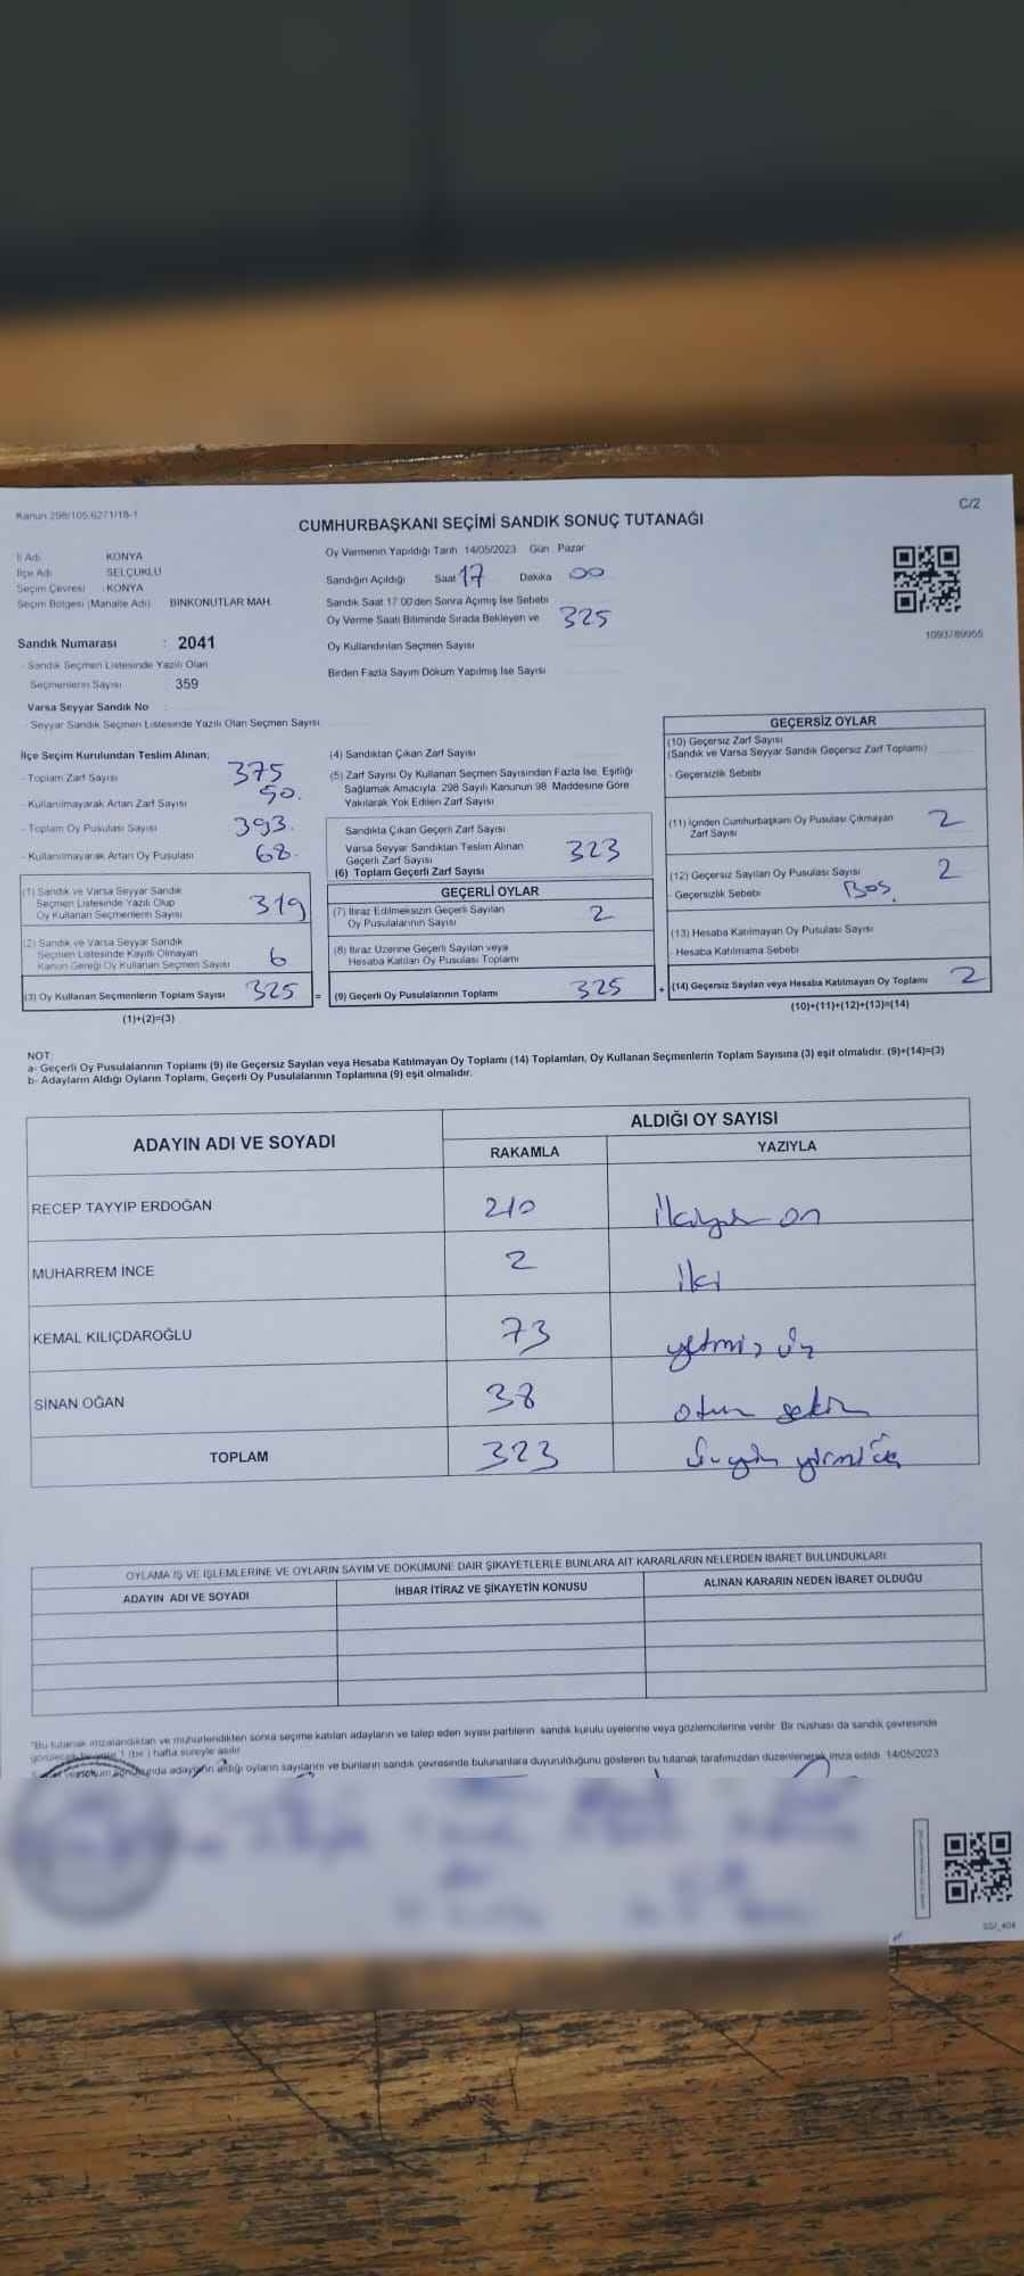 Kanun 298/105,6271/18-1
C/2
CUMHURBAŞKANI SEÇİMİ SANDIK SONUÇ TUTANAĞI
İl Adı : KONYA
İlçe Adı : SELÇUKLU
Seçim Çevresi : KONYA
Seçim Bölgesi (Mahalle Adı) : BİNKONUTLAR MAH.
Sandık Numarası : 2041
- Sandık Seçmen Listesinde Yazılı Olan
Seçmenlerin Sayısı 359
Varsa Seyyar Sandık No
- Seyyar Sandık Seçmen Listesinde Yazılı Olan Seçmen Sayısı
Oy Vermenin Yapıldığı Tarih 14/05/2023 Gün : Pazar
Sandığın Açıldığı Saat 17 Dakika 00
Sandık Saat 17:00'den Sonra Açılmış İse Sebebi
Oy Verme Saati Bitiminde Sırada Bekleyen ve 325
Oy Kullandırılan Seçmen Sayısı
Birden Fazla Sayım Döküm Yapılmış İse Sayısı
1093789955
İlçe Seçim Kurulundan Teslim Alınan;
- Toplam Zarf Sayısı 375
- Kullanılmayarak Artan Zarf Sayısı 50.
- Toplam Oy Pusulası Sayısı 393.
- Kullanılmayarak Artan Oy Pusulası 68.
(1) Sandık ve Varsa Seyyar Sandık
Seçmen Listesinde Yazılı Olup
Oy Kullanan Seçmenlerin Sayısı 319
(2) Sandık ve Varsa Seyyar Sandık
Seçmen Listesinde Kayıtlı Olmayan
Kanun Gereği Oy Kullanan Seçmen Sayısı 6
(3) Oy Kullanan Seçmenlerin Toplam Sayısı 325 =
(1)+(2)=(3)
(4) Sandıktan Çıkan Zarf Sayısı
(5) Zarf Sayısı Oy Kullanan Seçmen Sayısından Fazla İse, Eşitliği
Sağlamak Amacıyla, 298 Sayılı Kanunun 98. Maddesine Göre
Yakılarak Yok Edilen Zarf Sayısı
Sandıkta Çıkan Geçerli Zarf Sayısı
Varsa Seyyar Sandıktan Teslim Alınan
Geçerli Zarf Sayısı 323
(6) Toplam Geçerli Zarf Sayısı
GEÇERLİ OYLAR
(7) İtiraz Edilmeksizin Geçerli Sayılan
Oy Pusulalarının Sayısı 2
(8) İtiraz Üzerine Geçerli Sayılan veya
Hesaba Katılan Oy Pusulası Toplamı
(9) Geçerli Oy Pusulalarının Toplamı 325 +
GEÇERSİZ OYLAR
(10) Geçersiz Zarf Sayısı
(Sandık ve Varsa Seyyar Sandık Geçersiz Zarf Toplamı)
- Geçersizlik Sebebi
(11) İçinden Cumhurbaşkanı Oy Pusulası Çıkmayan 2
Zarf Sayısı
(12) Geçersiz Sayılan Oy Pusulası Sayısı 2
- Geçersizlik Sebebi Boş.
(13) Hesaba Katılmayan Oy Pusulası Sayısı
- Hesaba Katılmama Sebebi
(14) Geçersiz Sayılan veya Hesaba Katılmayan Oy Toplamı 2
(10)+(11)+(12)+(13)=(14)
NOT:
a- Geçerli Oy Pusulalarının Toplamı (9) ile Geçersiz Sayılan veya Hesaba Katılmayan Oy Toplamı (14) Toplamları, Oy Kullanan Seçmenlerin Toplam Sayısına (3) eşit olmalıdır. (9)+(14)=(3)
b- Adayların Aldığı Oyların Toplamı, Geçerli Oy Pusulalarının Toplamına (9) eşit olmalıdır.
ADAYIN ADI VE SOYADI ALDIĞI OY SAYISI
RAKAMLA YAZIYLA
RECEP TAYYIP ERDOĞAN 210 ikiyüz on
MUHARREM İNCE 2 iki
KEMAL KILIÇDAROĞLU 73 yetmiş üç
SİNAN OĞAN 38 otuz sekiz
TOPLAM 323 üçyüz yirmi üç
OYLAMA İŞ VE İŞLEMLERİNE VE OYLARIN SAYIM VE DÖKÜMÜNE DAİR ŞİKAYETLERLE BUNLARA AİT KARARLARIN NELERDEN İBARET BULUNDUKLARI
ADAYIN ADI VE SOYADI İHBAR İTİRAZ VE ŞİKAYETİN KONUSU ALINAN KARARIN NEDEN İBARET OLDUĞU
"Bu tutanak imzalandıktan ve mühürlendikten sonra seçime katılan adayların ve talep eden siyasi partilerin sandık kurulu üyelerine veya gözlemcilerine verilir. Bir nüshası da sandık çevresinde
1 (bir) hafta süreyle asılır.
adayların aldığı oyların sayılarını ve bunların sandık çevresinde bulunanlara duyurulduğunu gösteren bu tutanak tarafımızdan düzenlenerek imza edildi. 14/05/2023